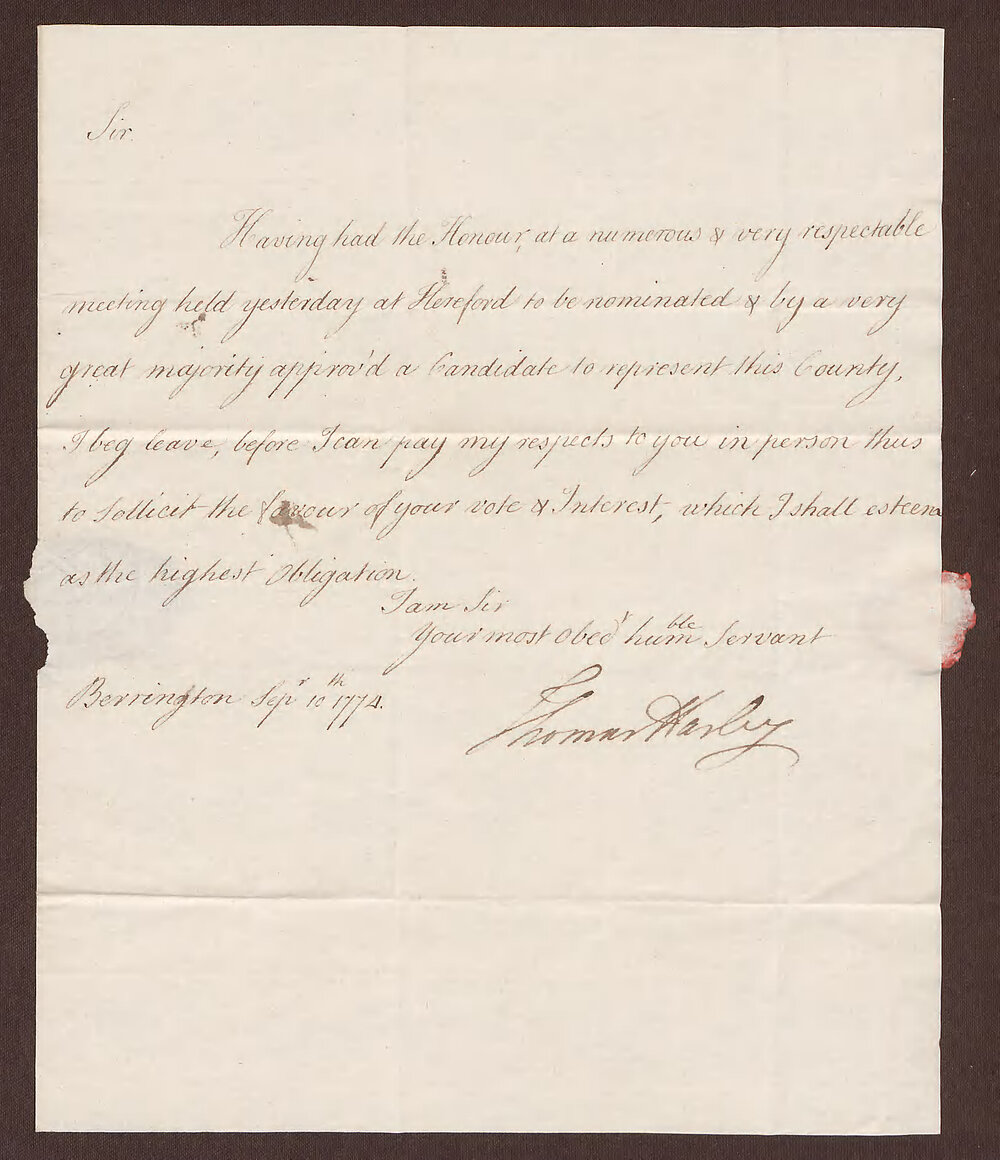 Sir.
Having had the Honour, at a numerous & very respectable
meeting held yesterday at Hereford to be nominated & by a very
great majority approv'd a Candidate to represent this County,
I beg leave, before I can pay my respects to you in person thus
to sollicit the favour of your vote & Interest, which I shall esteem
as the highest Obligation.
I am Sir
Your most Obed^t hum^ble Servant
Berrington Sep^r 10^th 1774.
Thomas Harley